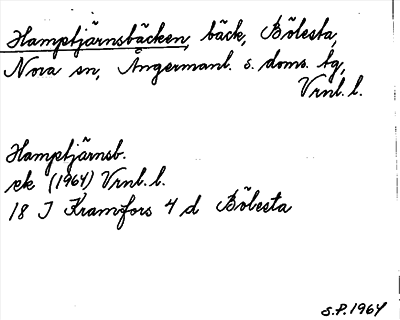 Hamptjärnsbäcken, bäck, Bölesta,
Nora sn, Ångermanl. s. doms. tg,
Vrnl. l.
Hamptjärnsb.
ek (1964) Vrnl. l.
18 J Kramfors 4 d Bölesta
S.P. 1964